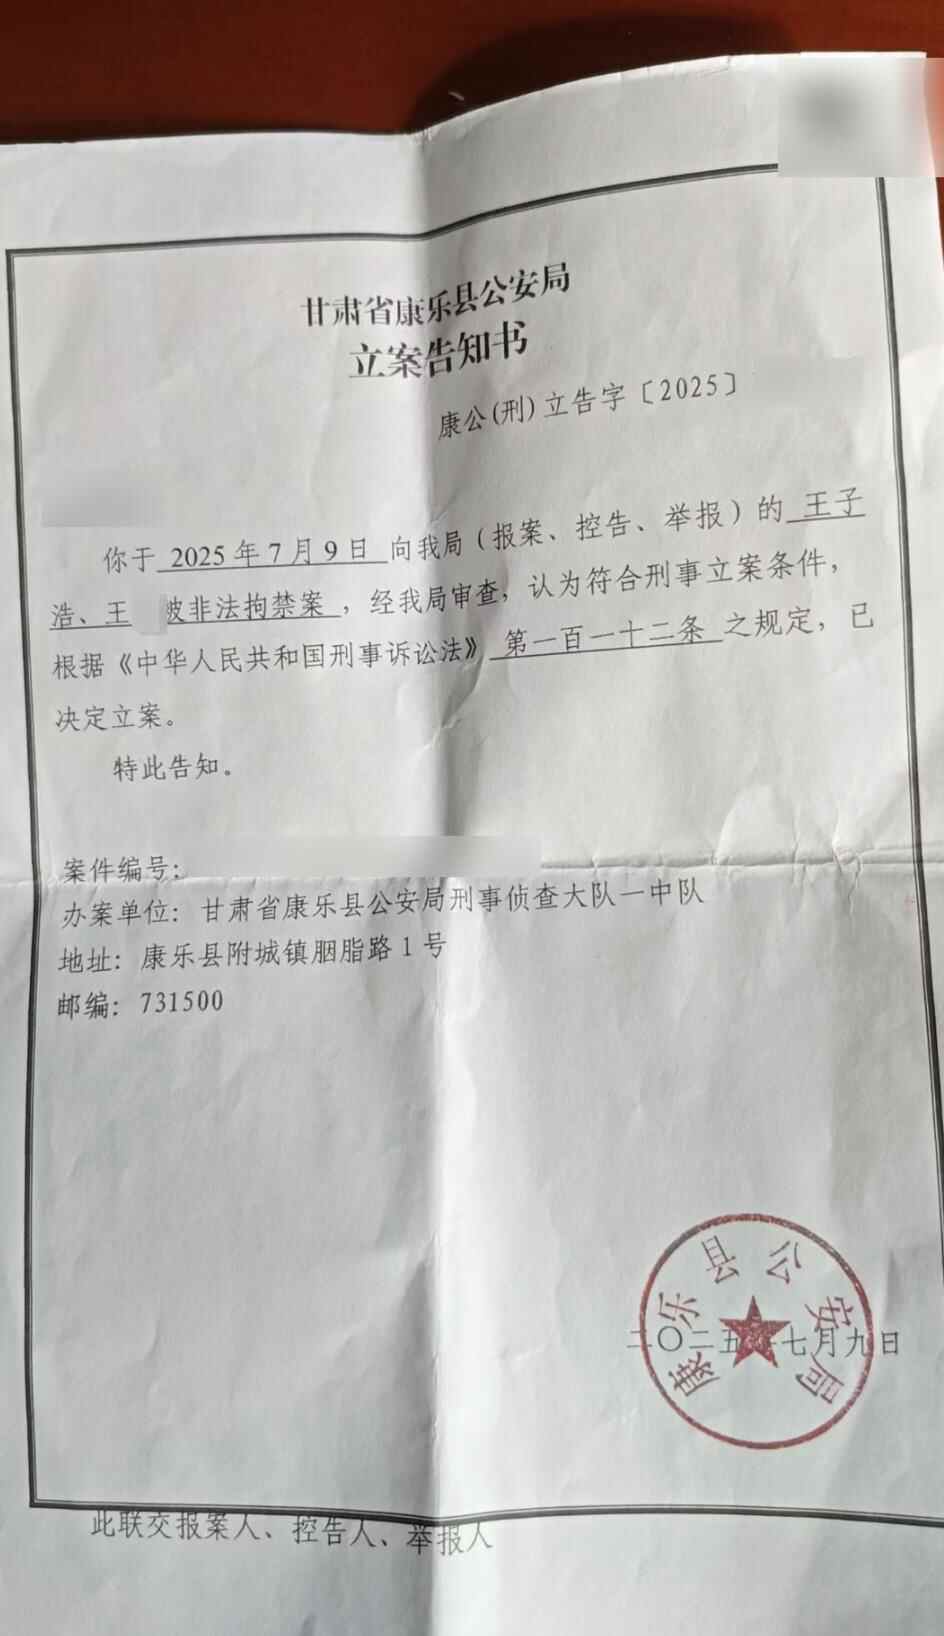 甘肃省康乐县公安局
立案告知书
康公(刑)立告字〔2025〕
你于 2025年7月9日 向我局(报案、控告、举报)的 王子
浩、王 被非法拘禁案 ,经我局审查,认为符合刑事立案条件,
根据《中华人民共和国刑事诉讼法》 第一百一十二条 之规定,已
决定立案。
特此告知。
案件编号:
办案单位:甘肃省康乐县公安局刑事侦查大队一中队
地址:康乐县附城镇胭脂路1号
邮编:731500
康乐县公安局
二〇二五年七月九日
此联交报案人、控告人、举报人